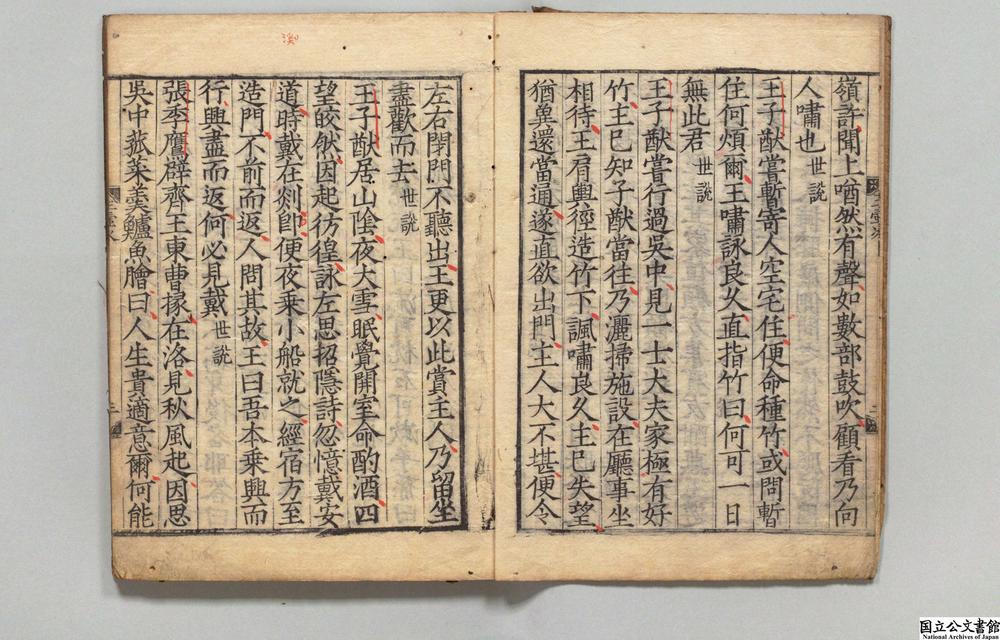 嶺許聞上㗀然有聲如數部鼓吹顧看乃向
人嘯也世說
王子猷嘗暫寄人空宅住便命種竹或問暫
住何煩爾王嘯詠良久直指竹曰何可一日
無此君世說
王子猷嘗行過吳中見一士大夫家極有好
竹主已知子猷當往乃灑掃施設在廳事坐
相待王肩輿徑造竹下諷嘯良久主已失望
猶冀還當通遂直欲出門主人大不堪便令
左右閉門不聽出王更以此賞主人乃留坐
盡歡而去世說
王子猷居山陰夜大雪眠覺開室命酌酒四
望皎然因起彷徨詠左思招隱詩忽憶戴安
道時戴在剡卽便夜乘小船就之經宿方至
造門不前而返人問其故王曰吾本乘興而
行興盡而返何必見戴世說
張季鷹辟齊王東曹掾在洛見秋風起因思
吳中菰菜羹鱸魚膾曰人生貴適意爾何能
国立公文書館
National Archives of Japan